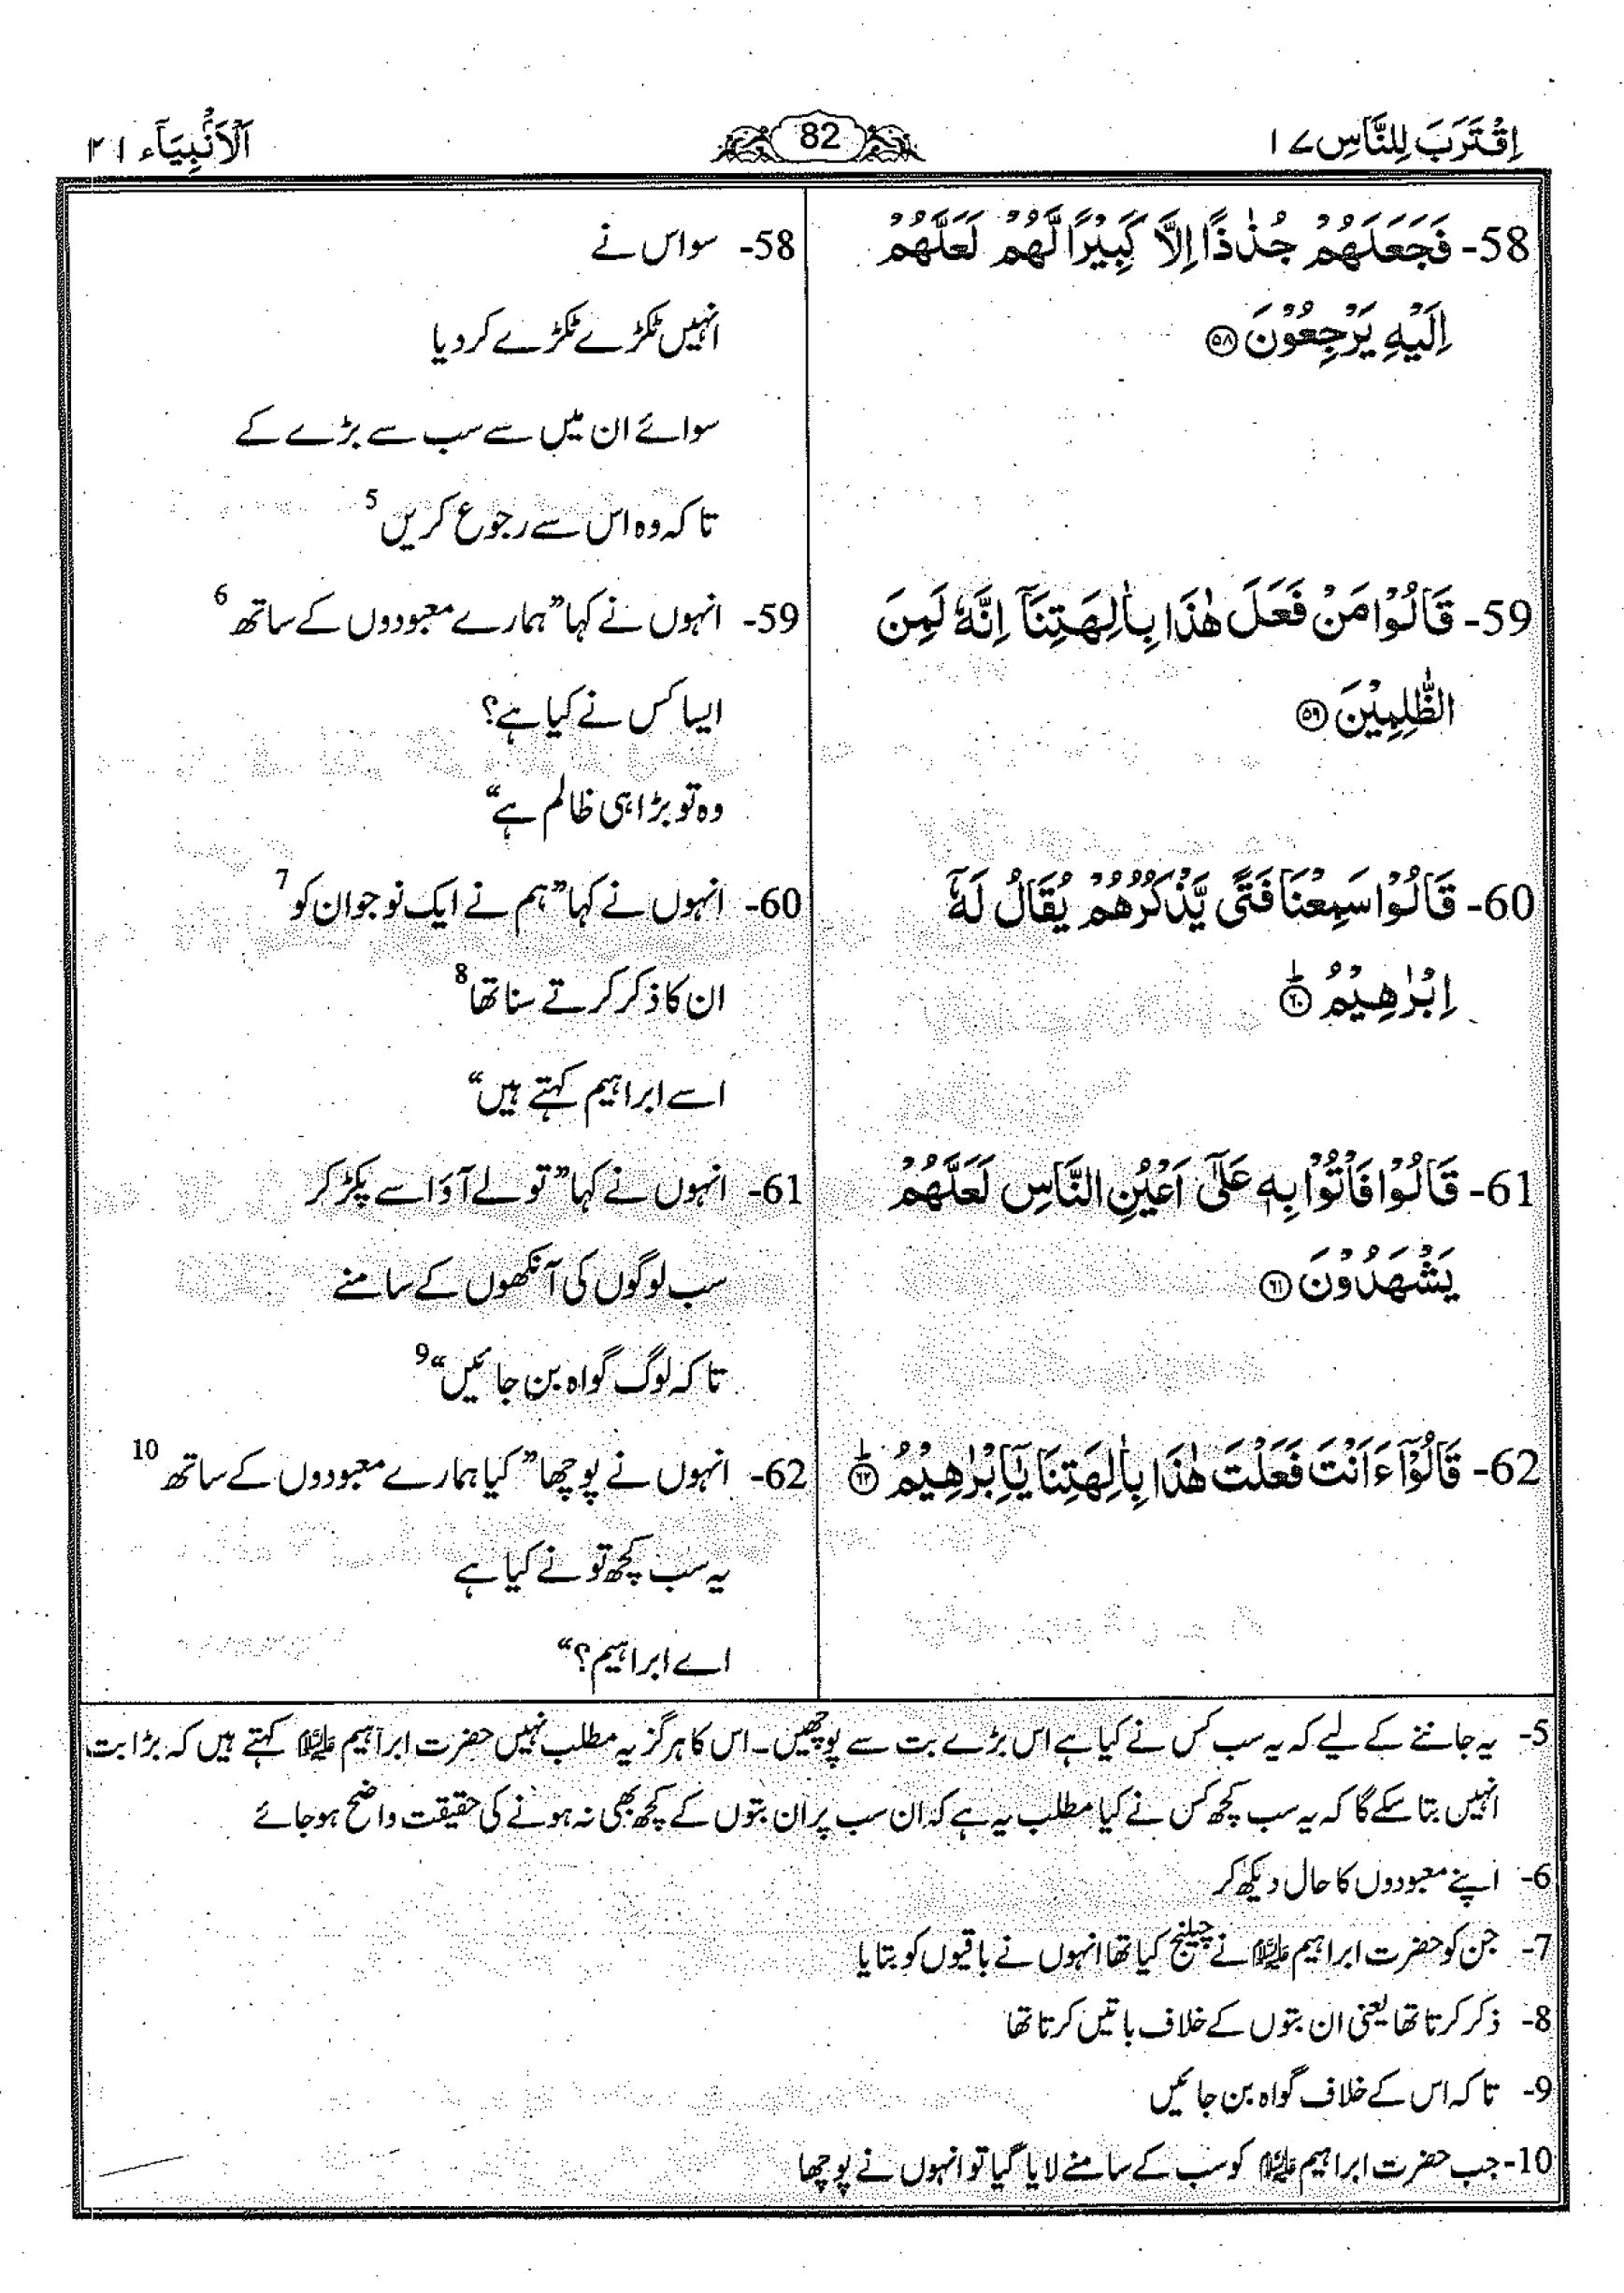 اِقْتَرَبَ لِلنَّاسِ ۱۷
82
اَلْاَنْۢبِیَآء ۲۱
58- فَجَعَلَهُمْ جُذٰذًا اِلَّا كَبِیْرًا لَّهُمْ لَعَلَّهُمْ
اِلَیْهِ یَرْجِعُوْنَ ۝۵۸
58- سو اس نے
انہیں ٹکڑے ٹکڑے کر دیا
سوائے ان میں سے سب سے بڑے کے
تا کہ وہ اس سے رجوع کریں 5
59- قَالُوْا مَنْ فَعَلَ هٰذَا بِاٰلِهَتِنَاۤ اِنَّهٗ لَمِنَ
الظّٰلِمِیْنَ ۝۵۹
59- انہوں نے کہا ”ہمارے معبودوں کے ساتھ 6
ایسا کس نے کیا ہے؟
وہ تو بڑا ہی ظالم ہے“
60- قَالُوْا سَمِعْنَا فَتًى یَّذْكُرُهُمْ یُقَالُ لَهٗۤ
اِبْرٰهِیْمُ ؕ۝۶۰
60- انہوں نے کہا ”ہم نے ایک نوجوان کو 7
ان کا ذکر کرتے سنا تھا 8
اسے ابراہیم کہتے ہیں“
61- قَالُوْا فَاْتُوْا بِهٖ عَلٰۤى اَعْیُنِ النَّاسِ لَعَلَّهُمْ
یَشْهَدُوْنَ ۝۶۱
61- انہوں نے کہا ”تو لے آؤ اسے پکڑ کر
سب لوگوں کی آنکھوں کے سامنے
تا کہ لوگ گواہ بن جائیں“ 9
62- قَالُوْۤا ءَاَنْتَ فَعَلْتَ هٰذَا بِاٰلِهَتِنَا یٰۤاِبْرٰهِیْمُ ؕ۝۶۲
62- انہوں نے پوچھا ”کیا ہمارے معبودوں کے ساتھ 10
یہ سب کچھ تو نے کیا ہے
اے ابراہیم؟“
5- یہ جاننے کے لیے کہ یہ سب کس نے کیا ہے اس بڑے بت سے پوچھیں۔ اس کا ہرگز یہ مطلب نہیں حضرت ابراہیم علیہ السلام کہتے ہیں کہ بڑا بت
انہیں بتا سکے گا کہ یہ سب کچھ کس نے کیا مطلب یہ ہے کہ ان سب پر ان بتوں کے کچھ بھی نہ ہونے کی حقیقت واضح ہو جائے
6- اپنے معبودوں کا حال دیکھ کر
7- جن کو حضرت ابراہیم علیہ السلام نے چیلنج کیا تھا انہوں نے باقیوں کو بتایا
8- ذکر کرتا تھا یعنی ان بتوں کے خلاف باتیں کرتا تھا
9- تا کہ اس کے خلاف گواہ بن جائیں
10- جب حضرت ابراہیم علیہ السلام کو سب کے سامنے لایا گیا تو انہوں نے پوچھا